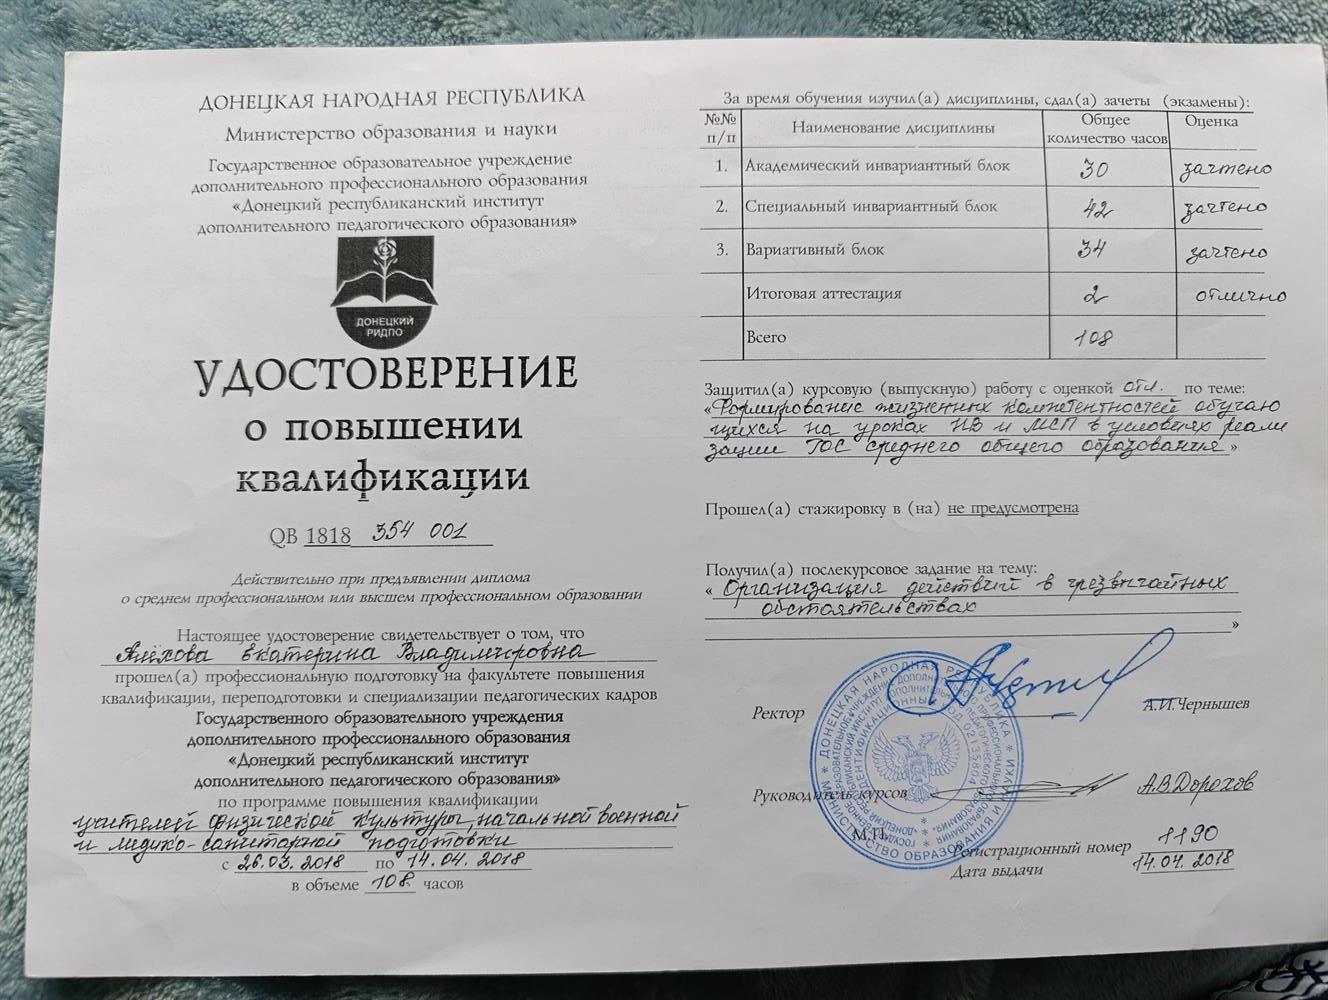 ДОНЕЦКАЯ НАРОДНАЯ РЕСПУБЛИКА
Министерство образования и науки
Государственное образовательное учреждение
дополнительного профессионального образования
«Донецкий республиканский институт
дополнительного педагогического образования»
ДОНЕЦКИЙ
РИДПО
УДОСТОВЕРЕНИЕ
о повышении
квалификации
QB 1818 354 001
Действительно при предъявлении диплома
о среднем профессиональном или высшем профессиональном образовании
Настоящее удостоверение свидетельствует о том, что
Алёхова Екатерина Владимировна
прошел(а) профессиональную подготовку на факультете повышения
квалификации, переподготовки и специализации педагогических кадров
Государственного образовательного учреждения
дополнительного профессионального образования
«Донецкий республиканский институт
дополнительного педагогического образования»
по программе повышения квалификации
учителей физической культуры, начальной военной
и медико-санитарной подготовки
с 26.03.2018 по 14.04.2018
в объеме 108 часов
За время обучения изучил(а) дисциплины, сдал(а) зачеты (экзамены):
№№ п/п Наименование дисциплины Общее количество часов Оценка
1. Академический инвариантный блок 30 зачтено
2. Специальный инвариантный блок 42 зачтено
3. Вариативный блок 34 зачтено
Итоговая аттестация 2 отлично
Всего 108
Защитил(а) курсовую (выпускную) работу с оценкой отл. по теме:
«Формирование жизненных компетентностей обучаю
щихся на уроках НВ и МСП в условиях реали
зации ГОС среднего общего образования»
Прошел(а) стажировку в (на) не предусмотрена
Получил(а) послекурсовое задание на тему:
«Организация действий в чрезвычайных
обстоятельствах
»
Ректор А.И.Чернышев
Руководитель курсов А.В.Дорохов
М.П.
Регистрационный номер 1190
Дата выдачи 14.04.2018